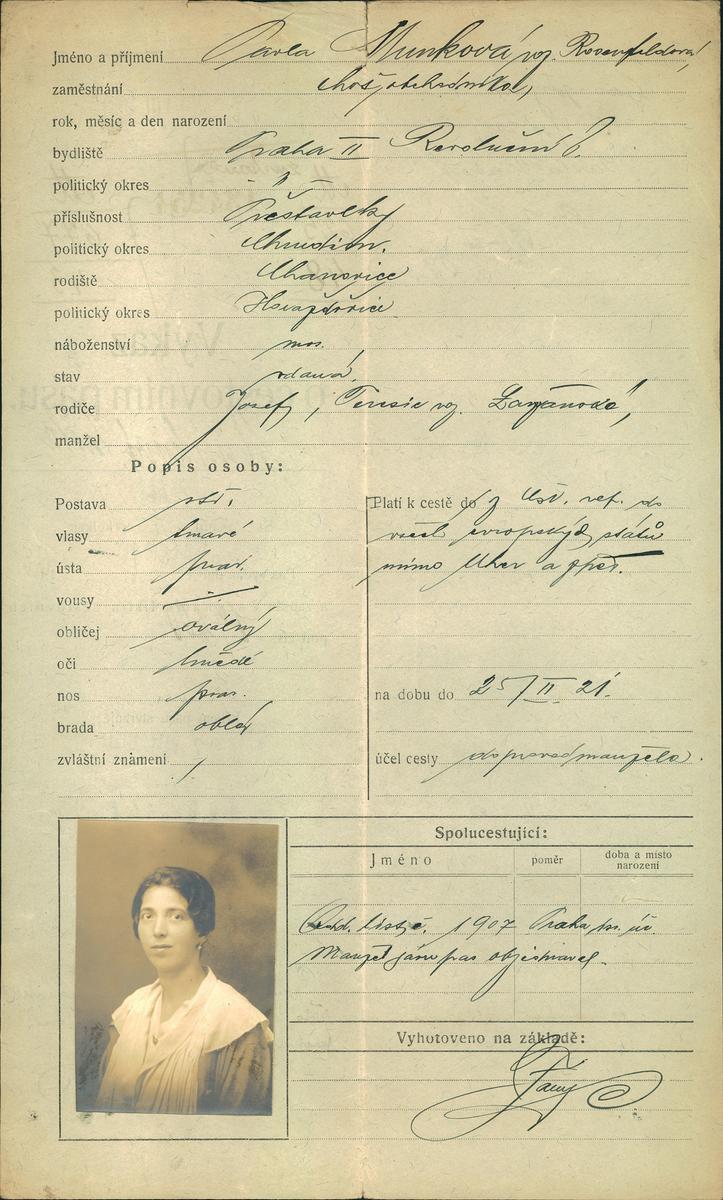 Jméno a příjmení Pavla Munková roz. Rosenfeldová,
zaměstnání choť obchodníka,
rok, měsíc a den narození
bydliště Praha II Revoluční 8.
politický okres " —
příslušnost Přestavlky
politický okres Chrudim.
rodiště Chanovice
politický okres
náboženství mos.
stav vdaná,
rodiče Josef, Teresie roz.
manžel
Popis osoby:
Postava stř.
vlasy tmavé
ústa prav.
vousy —
obličej oválný
oči hnědé
nos prav.
brada oblá
zvláštní znamení /
Platí k cestě do z čsl. rep. do
všech evropských států
mimo Uher a zpět.
na dobu do 25/II 21.
účel cesty doprovod manžela.
Spolucestující:
Jméno poměr doba a místo narození
Odd. list č. 1907 Praha
Manžel sám pas objednával.
Vyhotoveno na základě: